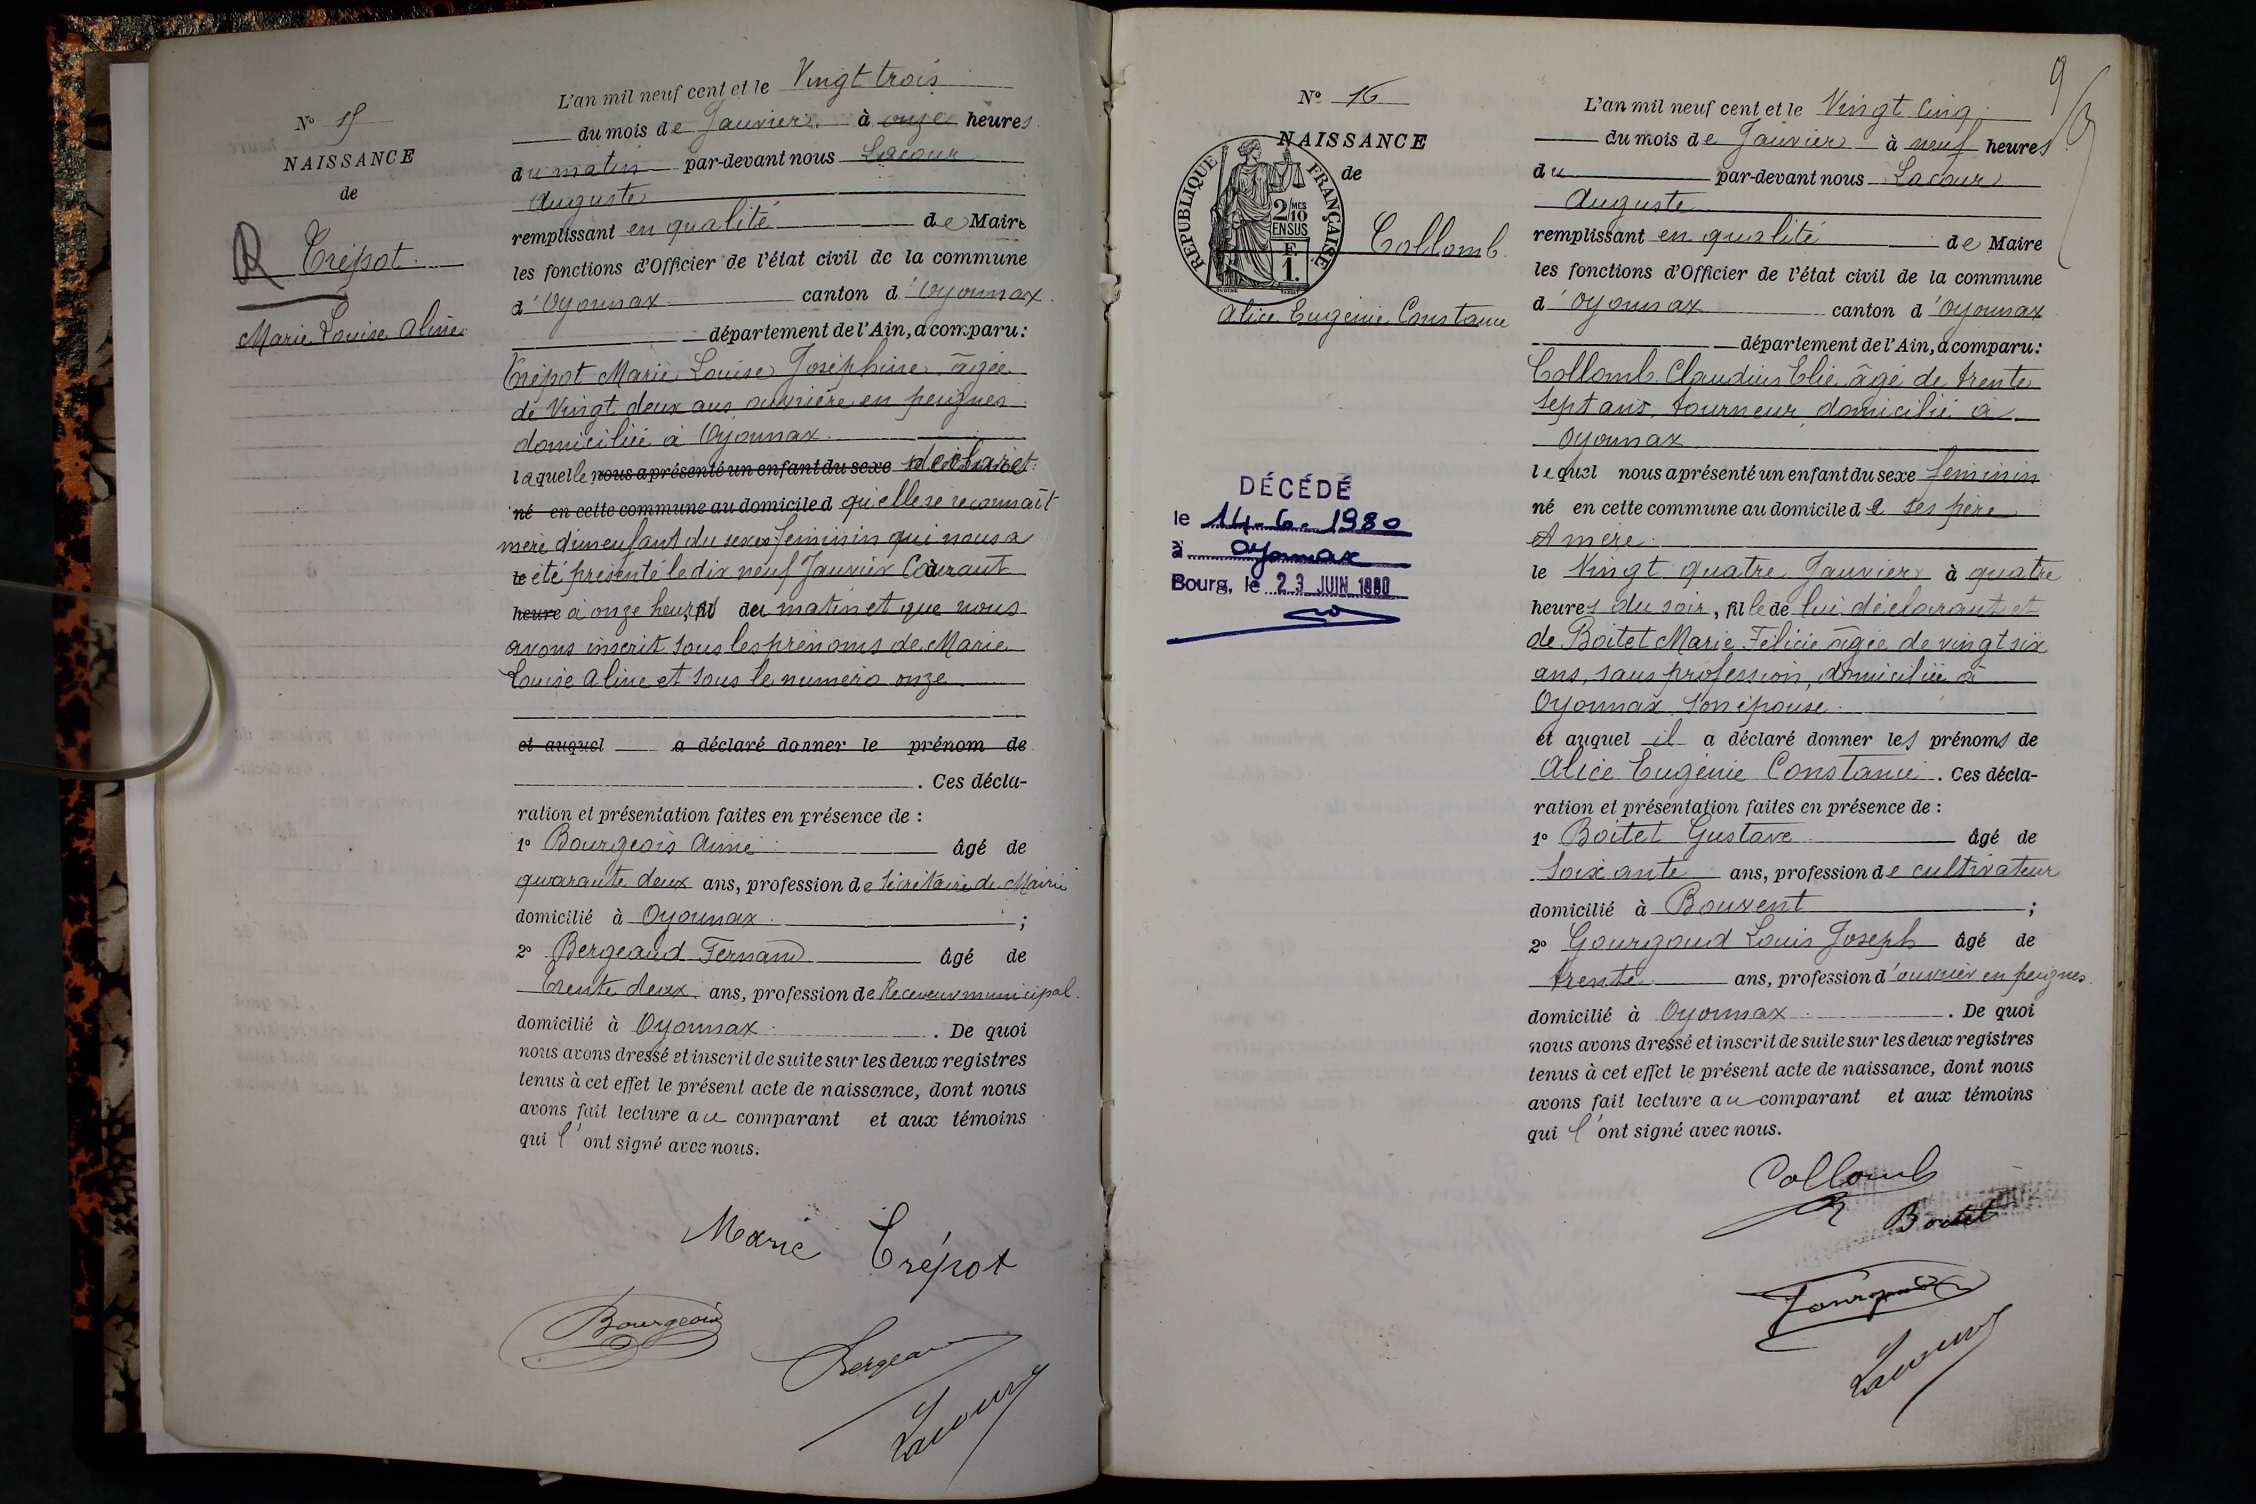 N° 15
NAISSANCE
de
R Trépot
Marie Louise Aline
L'an mil neuf cent et le Vingt trois
du mois de Janvier à onze heures
du matin par-devant nous Lacour
Auguste
remplissant en qualité de Maire
les fonctions d'Officier de l'état civil de la commune
d'Oyonnax canton d'Oyonnax
département de l'Ain, a comparu:
Trépot Marie Louise Joséphine âgée
de Vingt deux ans ouvrière en peignes
domiciliée à Oyonnax
laquelle nous a présenté un enfant du sexe déclaré
né en cette commune au domicile d qu'elle se reconnaît
mère d'un enfant du sexe feminin qui nous a
le été présenté le dix neuf Janvier Courant
heure à onze heures, fil du matin et que nous
avons inscrit sous les prénoms de Marie
Louise Aline et sous le numéro onze
et auquel a déclaré donner le prénom de
. Ces décla-
ration et présentation faites en présence de :
1° Bourgeois Aimé âgé de
quarante deux ans, profession de Secrétaire de Mairie
domicilié à Oyonnax ;
2° Bergeaud Fernand âgé de
trente deux ans, profession de Receveur municipal
domicilié à Oyonnax . De quoi
nous avons dressé et inscrit de suite sur les deux registres
tenus à cet effet le présent acte de naissance, dont nous
avons fait lecture au comparant et aux témoins
qui l'ont signé avec nous.
Marie Trépot
Bourgeois
Bergeaud
Lacour
9
N° 16
NAISSANCE
de
REPUBLIQUE FRANÇAISE
2/10 MES
EN SUS
F.
1.
Collomb
Alice Eugénie Constance
DÉCÉDÉ
le 14-6-1980
à Oyonnax
Bourg, le 23 JUIN 1980
L'an mil neuf cent et le Vingt cinq
du mois de Janvier à neuf heures
du par-devant nous Lacour
Auguste
remplissant en qualité de Maire
les fonctions d'Officier de l'état civil de la commune
d'Oyonnax canton d'Oyonnax
département de l'Ain, a comparu:
Collomb Claudius Elie âgé de trente
sept ans, tourneur domicilié à
Oyonnax
lequel nous a présenté un enfant du sexe feminin
né en cette commune au domicile de ses père
et mère
le Vingt quatre Janvier à quatre
heures du soir, fille de lui déclarant et
de Boitet Marie Félicie âgée de vingt six
ans, sans profession, domiciliée à
Oyonnax son épouse
et auquel il a déclaré donner les prénoms de
Alice Eugénie Constance . Ces décla-
ration et présentation faites en présence de :
1° Boitet Gustave âgé de
soixante ans, profession de cultivateur
domicilié à Bouvent ;
2° Gourgaud Louis Joseph âgé de
trente ans, profession d'ouvrier en peignes
domicilié à Oyonnax . De quoi
nous avons dressé et inscrit de suite sur les deux registres
tenus à cet effet le présent acte de naissance, dont nous
avons fait lecture au comparant et aux témoins
qui l'ont signé avec nous.
Collomb
Boitet
Gourgaud
Lacour